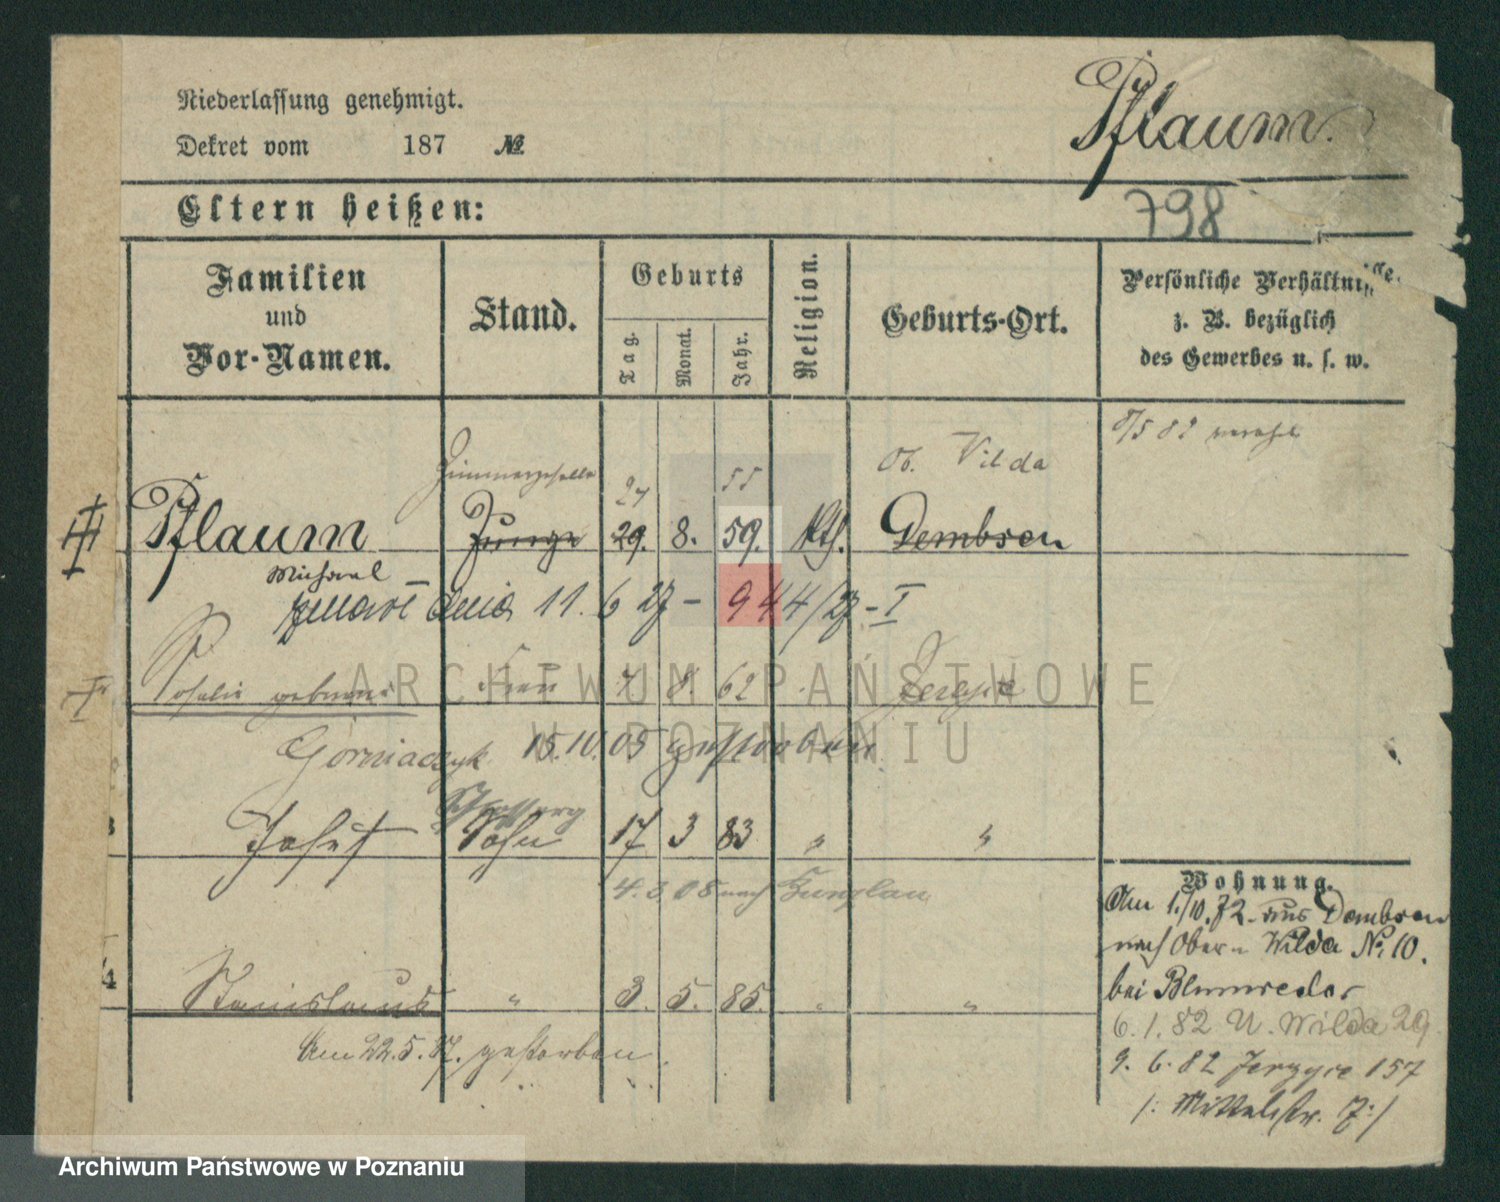 Niederlassung genehmigt.
Dekret vom 187 №
Pflaum.
798
Eltern heißen:
Familien und Vor-Namen.
Stand.
Geburts
Tag.
Monat.
Jahr.
Religion.
Geburts-Ort.
Persönliche Verhältnisse,
z. B. bezüglich
des Gewerbes u. s. w.
8/5 82
Zimmergeselle
27 55
Ob. Vilda
Pflaum Junge 29. 8. 59. Kth. Dembsen
Michael
zmarł dnia 11. 6 27 - 944/27 - I
Rosalie geborene Frau 7 8. 62 Jerzyce
Górniaczyk 15.10.05 gestorben
Josef Sohn 17 3 83 " "
4. 3 08 nach Bunzlau
4 Stanislaus " 3. 5. 85. " "
Am 22.5.87. gestorben.
Wohnung.
Am 1./10. 72. aus Dembsen
nach Ober- Wilda No. 10.
bei Blumreder
6. 1. 82 U. Wilda 29.
9. 6. 82 Jerzyce 157
/: Mittelstr. 7:/
ARCHIWUM PAŃSTWOWE
W POZNANIU
Archiwum Państwowe w Poznaniu